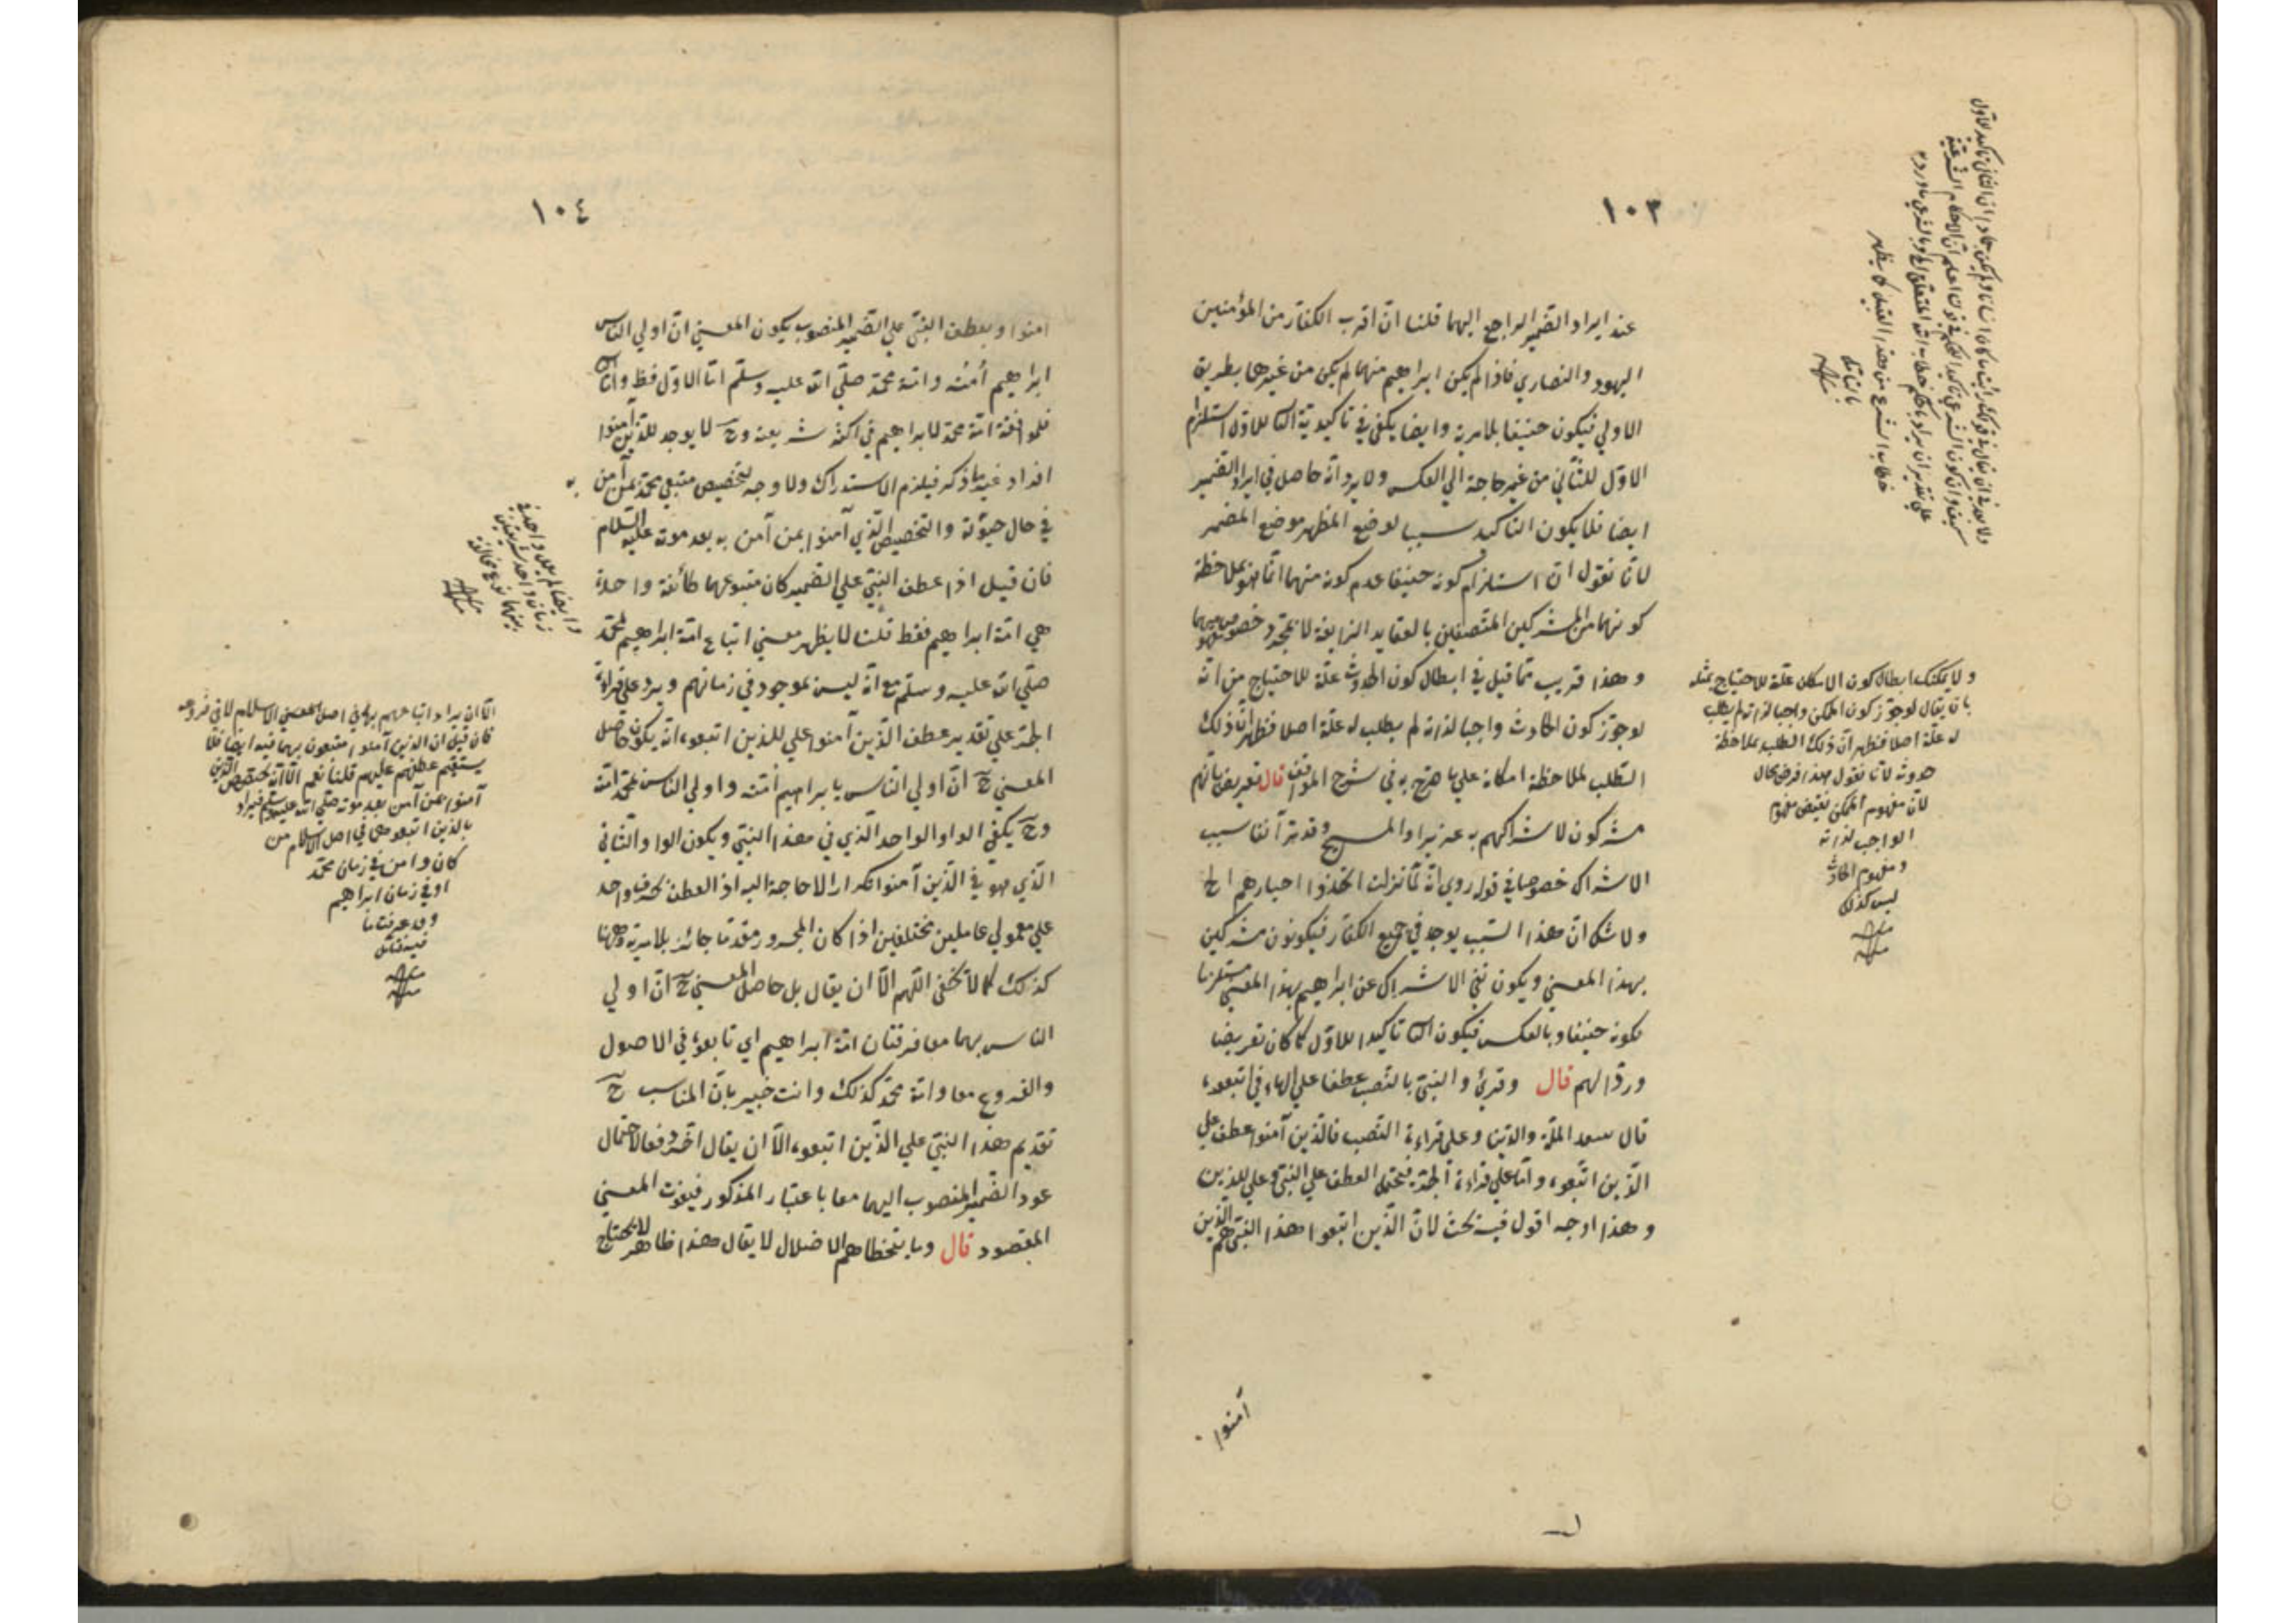 ١٠٣
عند ايراد الضمير الراجع اليهما قلنا ان اقرب الكفار من المؤمنين
اليهود والنصاري فاذا لم يكن ابراهيم منهما لم يكن من غيرهما بطريق
الاولي فيكون حنيفا بلا مرية وايضا يكفي في تاكيدية الثا للاول استلزام
الاول للثاني من غير حاجة الي العكس ولا يرد انه حاصل في ايراد الضمير
ايضا فلا يكون التاكيد سببا لوضع المظهر موضع المضمر
لانا نقول ان استلزام كونه حنيفا عدم كونه منهما انما هو بملاحظة
كونهما من المشركين المتصفين بالعقايد الزايغة لا بمجرد خصوص
وهذا قريب مما قيل في ابطال كون الحدوث علة للاحتياج من انه
لو جوز كون الحادث واجبا لذاته لم يطلب له علة اصلا فظهر ان ذلك
الطلب لملاحظة امكانه علي ما صرح به في شرح المواقف قال تعريض بانهم
مشركون لاشراكهم به عزيرا والمسيح وقد مر آنفا سبب
الاشراك خصوصا في قوله روي انه لما نزلت اتخذوا احبارهم الخ
ولا شك ان هذا السبب يوجد في جميع الكفار فيكونون مشركين
بهذا المعني ويكون نفي الاشراك عن ابراهيم بهذا المعني مستلزما
لكونه حنيفا وبالعكس فيكون الثا تاكيدا للاول كما كان تعريضا
وردا لهم قال وقرئ والنبي بالنصب عطفا علي الهاء في اتبعوه
قال سعد الملة والدين وعلي قراءة النصب فالذين آمنوا عطف علي
الذين اتبعوه واما علي قراءة الجر فيحتمل العطف علي النبي وعلي للذين
وهذا اوجه اقول فيه بحث لان الذين اتبعوا هذا النبي هم الذين
آمنوا
ولا يمكنك ابطال كون الامكان علة للاحتياج بمثله
بان يقال لو جوز كون الممكن واجبا لذاته لم يطلب
له علة اصلا فظهر ان ذلك الطلب بملاحظة
حدوثه لانا نقول هذا فرض محال
لان مفهوم الممكن نقيض مفهوم
الواجب لذاته
ومفهوم الحادث
ليس كذلك
١٠٤
امنوا وبعطف النبي علي الضمير المنصوب يكون المعني ان اولي الناس
ابراهيم امته وامة محمد صلي الله عليه وسلم اما الاول فظ واما الثا
فلموافقة امة محمد لابراهيم في اكثر شريعته وح لا يوجد للذين آمنوا
افراد غير ما ذكر فيلزم الاستدراك ولا وجه لتخصيص متبعي محمد بمن آمن به
في حال حيوته والتخصيص الذي آمنوا بمن آمن به بعد موته عليه السلام
فان قيل اذا عطف النبي علي الضمير كان متبوعهما طائفة واحدة
هي امة ابراهيم فقط قلنا لا يظهر معني اتباع امة ابراهيم لمحمد
صلي الله عليه وسلم مع انه ليس بموجود في زمانهم ويرد علي قراءة
الجر علي تقدير عطف الذين آمنوا علي للذين اتبعوه انه يكون حاصل
المعني ح ان اولي الناس بابراهيم امته واولي الناس بمحمد امته
وح يكفي الواو الواحد الذي في هذا النبي ويكون الواو الثاني
الذي هو في الذين آمنوا تكرارا لا حاجة اليه اذ العطف بحرف واحد
علي معمولي عاملين مختلفين اذا كان المجرور مقدما جائز بلا مرية وههنا
كذلك كما لا يخفي اللهم الا ان يقال بل حاصل المعني ح ان اولي
الناس بهما معا فرقتان امة ابراهيم اي تابعوه في الاصول
والفروع معا وامة محمد كذلك وانت خبير بان المناسب ح
تقديم هذا النبي علي الذين اتبعوه الا ان يقال اخر دفعا لاحتمال
عود الضمير المنصوب اليهما معا باعتبار المذكور فيفوت المعني
المقصود قال وما يتخطاهم الاضلال لا يقال هذا ظاهر لا يحتاج
الا ان يراد اتباعهم بهما في اصل معني الاسلام لا في فروعه
فان قيل ان الذين آمنوا متبعون بهما فيه ايضا فلا
يستقيم عطفهم عليهم قلنا نعم الا انه تخصيص الذين
آمنوا بمن آمن بعد موته صلي الله عليه وسلم فيراد
بالذين اتبعوهما في اصل الاسلام من
كان وامن في زمان محمد
او في زمان ابراهيم
وقد عرفت ما
فيه فتأمل